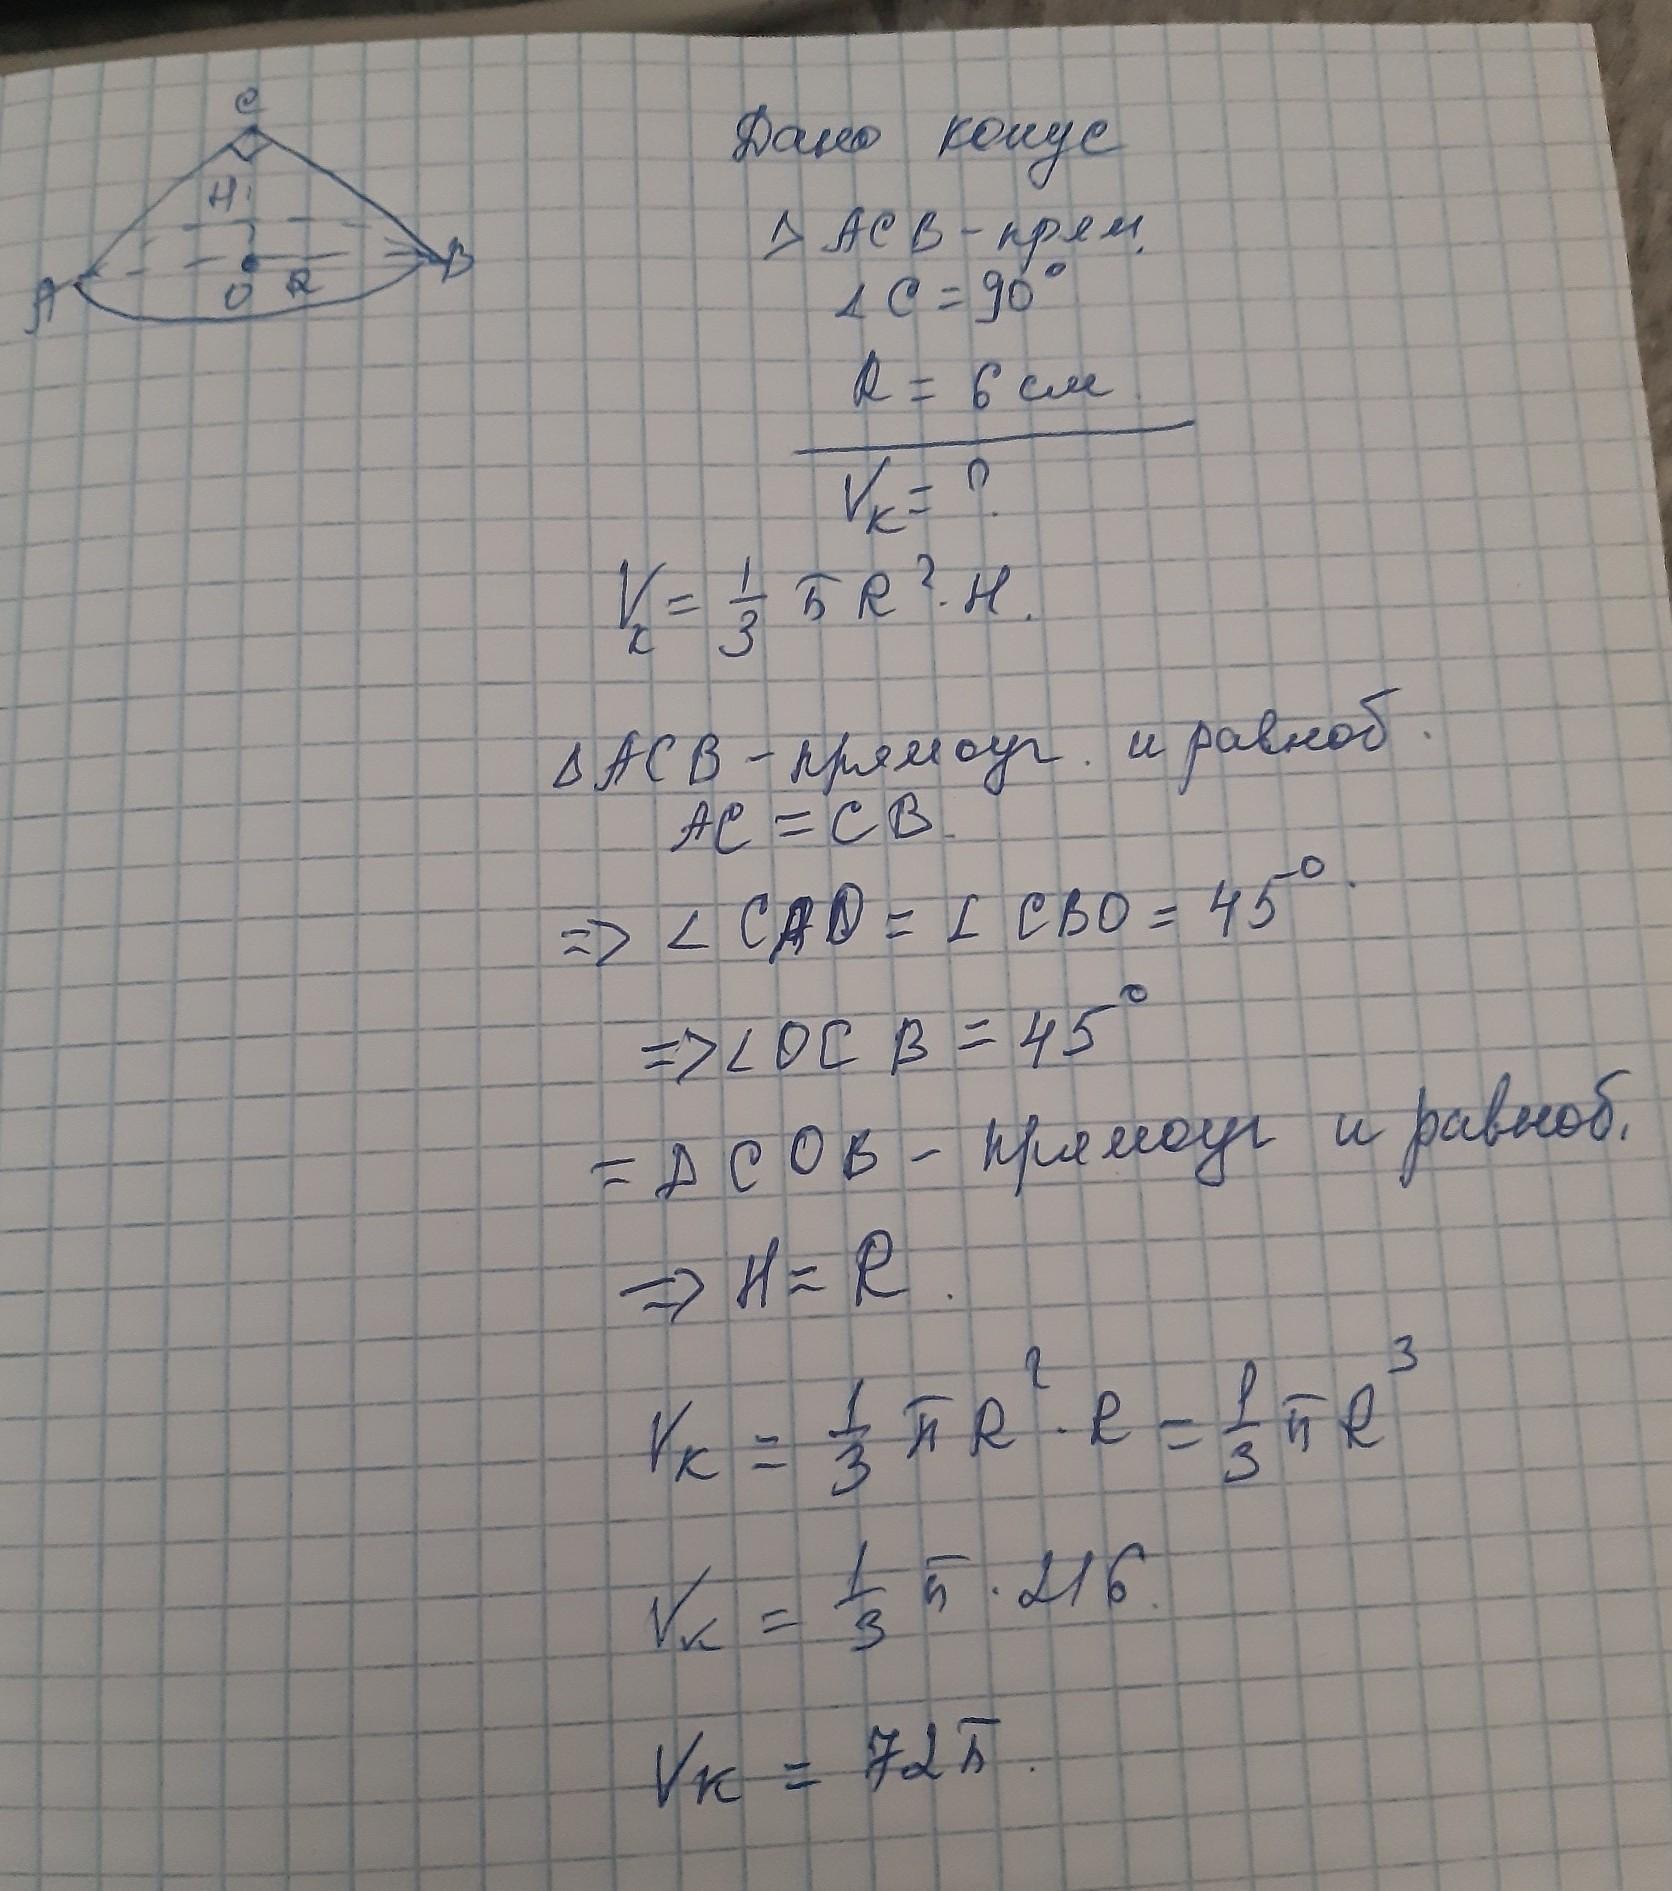 C
H
A
O
R
B
Дано конус
△ ACB - прям.
∠C = 90°
R = 6 см.
Vк = ?
Vк = 1/3 π R² · H.
△ACB - прямоуг. и равноб.
AC = CB.
=> ∠CAO = ∠CBO = 45°.
=> ∠OCB = 45°
= △COB - прямоуг и равноб.
=> H = R.
Vк = 1/3 π R² · R = 1/3 π R³
Vк = 1/3 π · 216.
Vк = 72π.